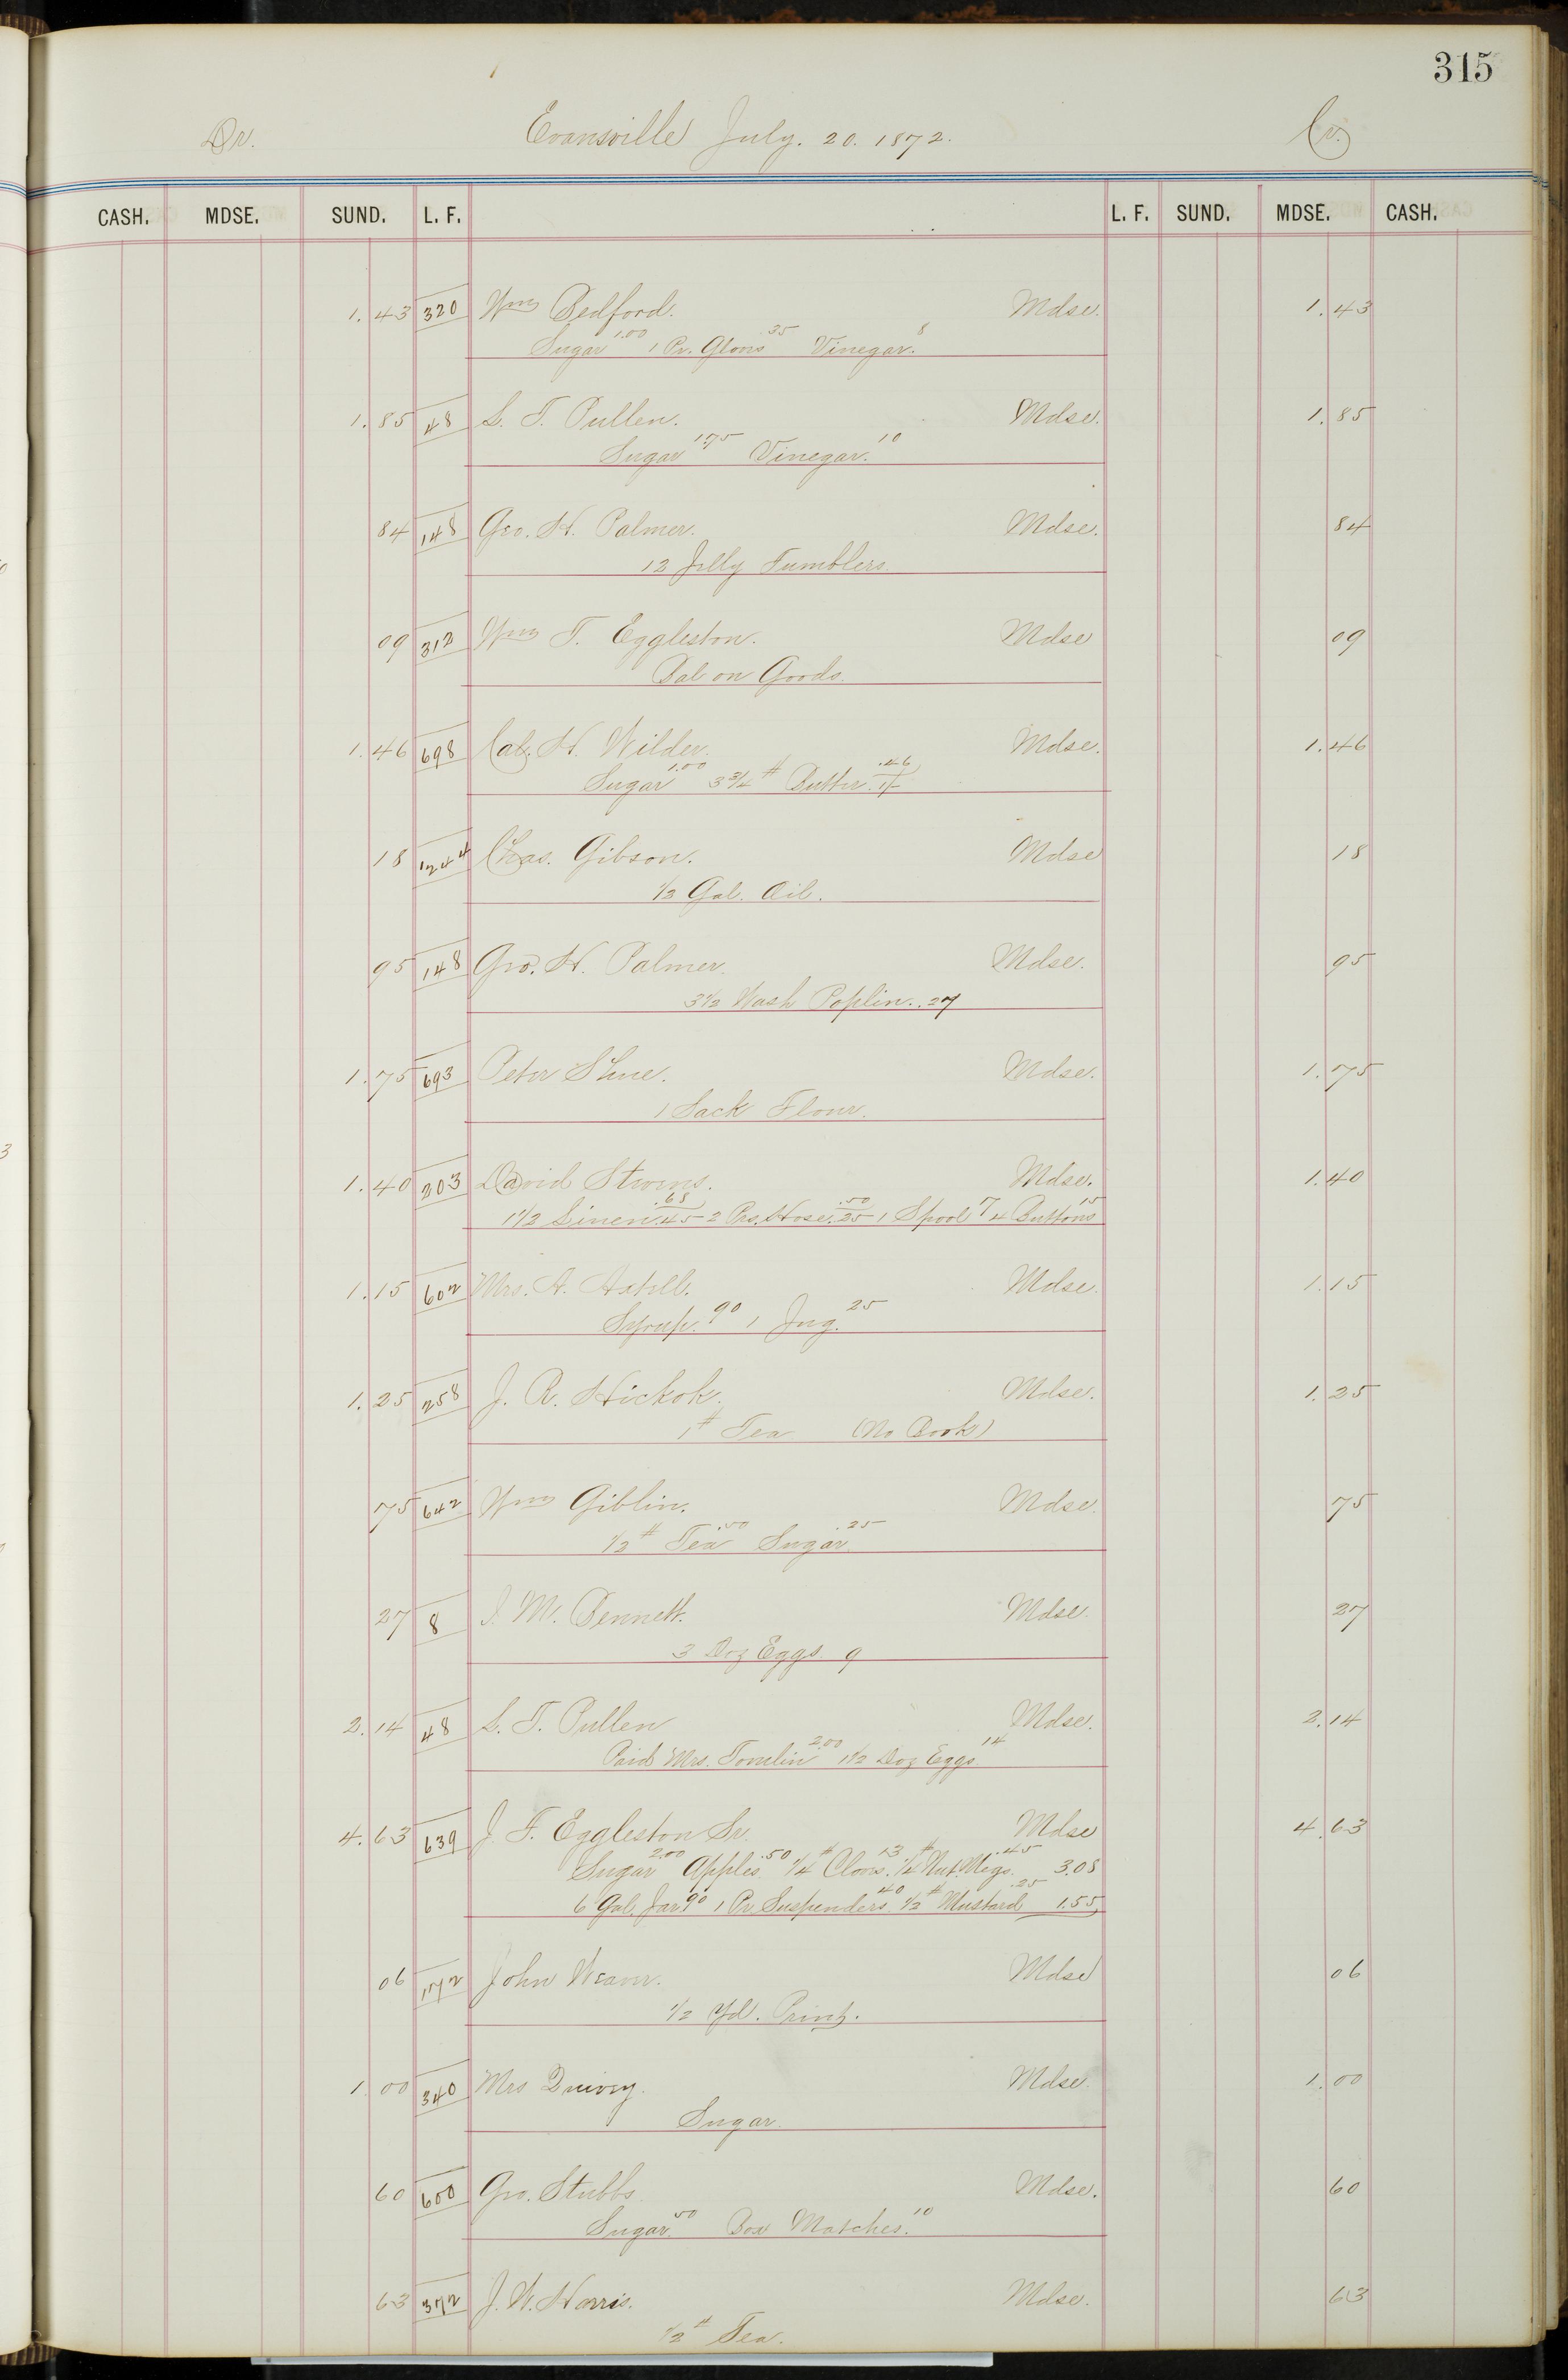 315
Dr. Evansville July. 20. 1872. Cr.
CASH. MDSE. SUND. L. F. L. F. SUND. MDSE. CASH.
1.43 320 Wm Bedford. Mdse. 1.43
Sugar 1.00 1 Pr. Glovs 35 Vinegar. 8
1.85 48 L. T. Pullen. Mdse. 1.85
Sugar 1.75 Vinegar. 10
84 148 Geo. H. Palmer. Mdse. 84
12 Jelly Tumblers.
09 312 Wm T. Eggleston. Mdse 09
Bal on Goods.
1.46 698 Cal. H. Wilder. Mdse. 1.46
Sugar 1.00 3 3/4 # Butter .46 1/-
18 1244 Chas. Gibson. Mdse 18
1/2 Gal. Oil.
95 148 Geo. H. Palmer. Mdse. 95
3 1/2 Wash Poplin. .27
1.75 693 Peter Shue. Mdse. 1.75
1 Sack Flour.
1.40 203 David Stevens. Mdse. 1.40
1 1/2 Linen .68 .45 2 Prs. Hose. .50 .25 1 Spool 7 4 Buttons 15
1.15 602 Mrs. A. Mdse. 1.15
Syrup. 90 1 Jug. 25
1.25 258 J. R. Hickok. Mdse. 1.25
1 # Tea (No Book)
75 642 Wm Giblin. Mdse. 75
1/2 # Tea .50 Sugar .25
27 8 I. M. Bennett. Mdse. 27
3 Doz Eggs. 9
2.14 48 L. T. Pullen Mdse. 2.14
Paid Mrs. Tomlin 2.00 1 1/2 Doz Eggs. 14
4.63 639 J. F. Eggleston Sr. Mdse 4.63
Sugar 2.00 Apples .50 1/4 # Clovs. 13 1/4 # Nut. Megs. .45 3.08
6 Gal. Jar. 90 1 Pr. Suspenders. 40 1/2 # Mustard .25 1.55
06 172 John Weaver. Mdse 06
1/2 Yd. Print.
1.00 340 Mrs Quivey. Mdse. 1.00
Sugar.
60 600 Geo. Stubbs. Mdse. 60
Sugar. 50 Box Matches. 10
63 372 J. W. Harris. Mdse. 63
1/2 # Tea.